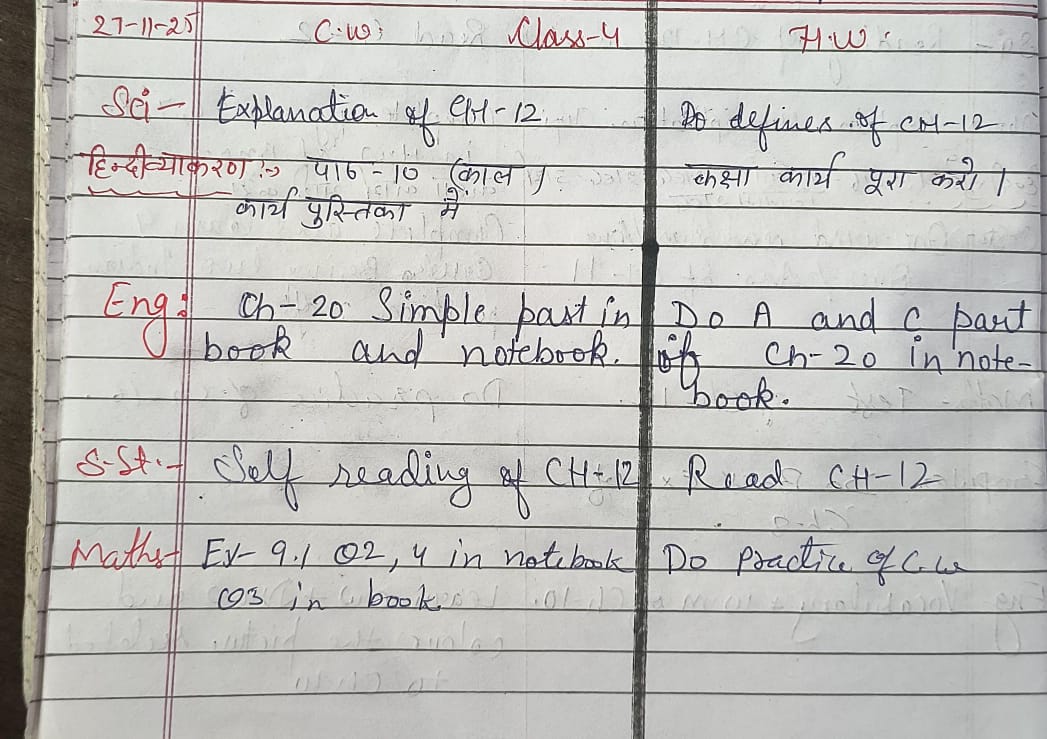 27-11-25 C.W: Class-4 H.W:
Sci- Explanation of CH-12 Do defines of CH-12
हिन्दी व्याकरण :- पाठ - 10 (काल) कक्षा कार्य पूरा करो।
कार्य पुस्तिका में
Eng: Ch-20 Simple past in Do A and C part
book and notebook. of Ch-20 in note-
book.
S.St.- Self reading of CH-12 Read CH-12
Maths- Ex- 9.1 Q2, 4 in notebook Do Practice of C.W
Q3 in book